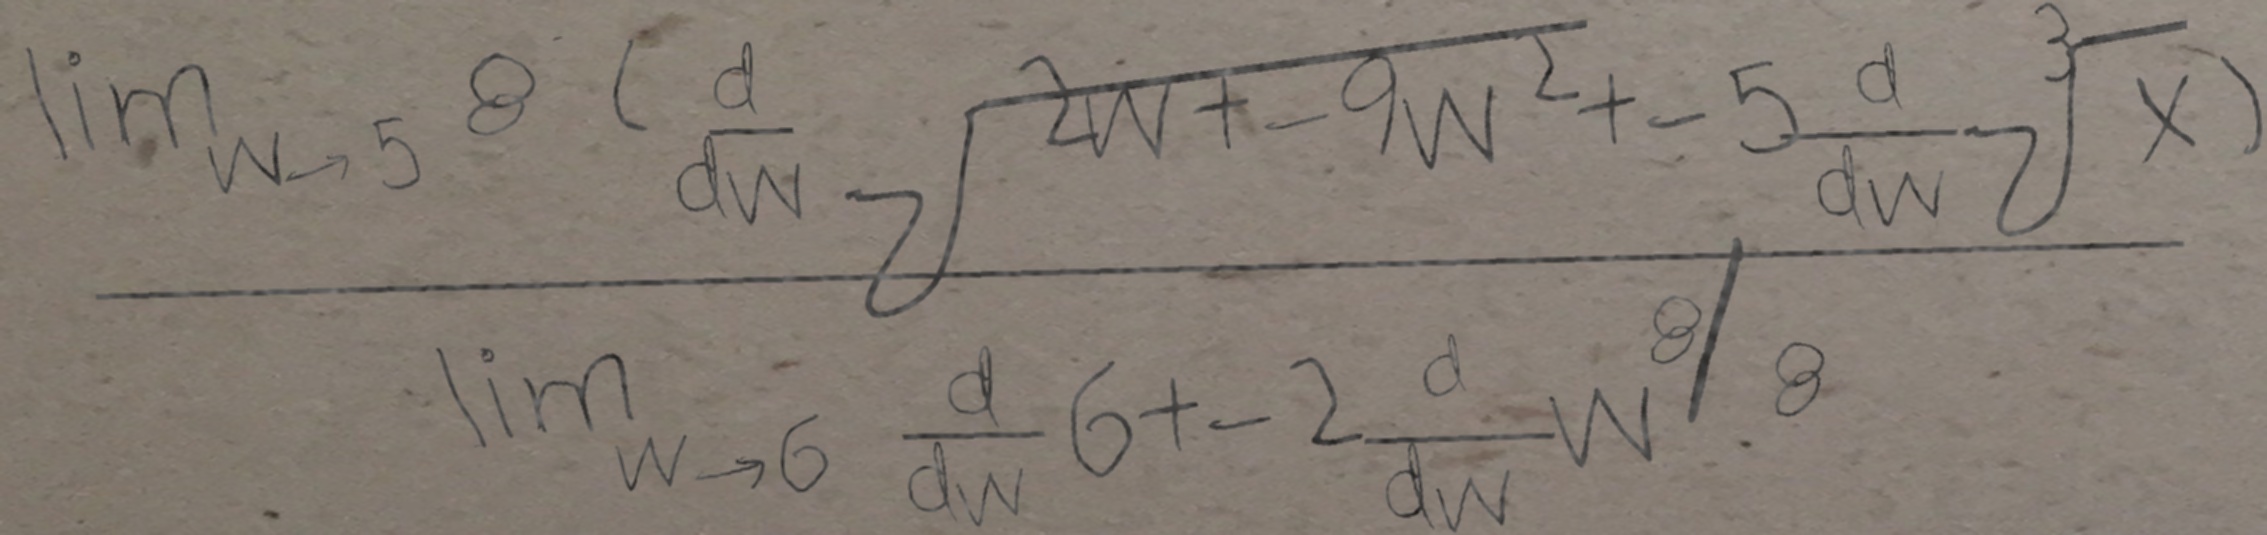 \frac{\lim_{w \to 5} 8 \left( \frac{d}{dw} \sqrt{2w + -9w^2} + -5 \frac{d}{dw} \sqrt[3]{x} \right)}{\lim_{w \to 6} \frac{d}{dw} 6 + -2 \frac{d}{dw} w^{8/8}}